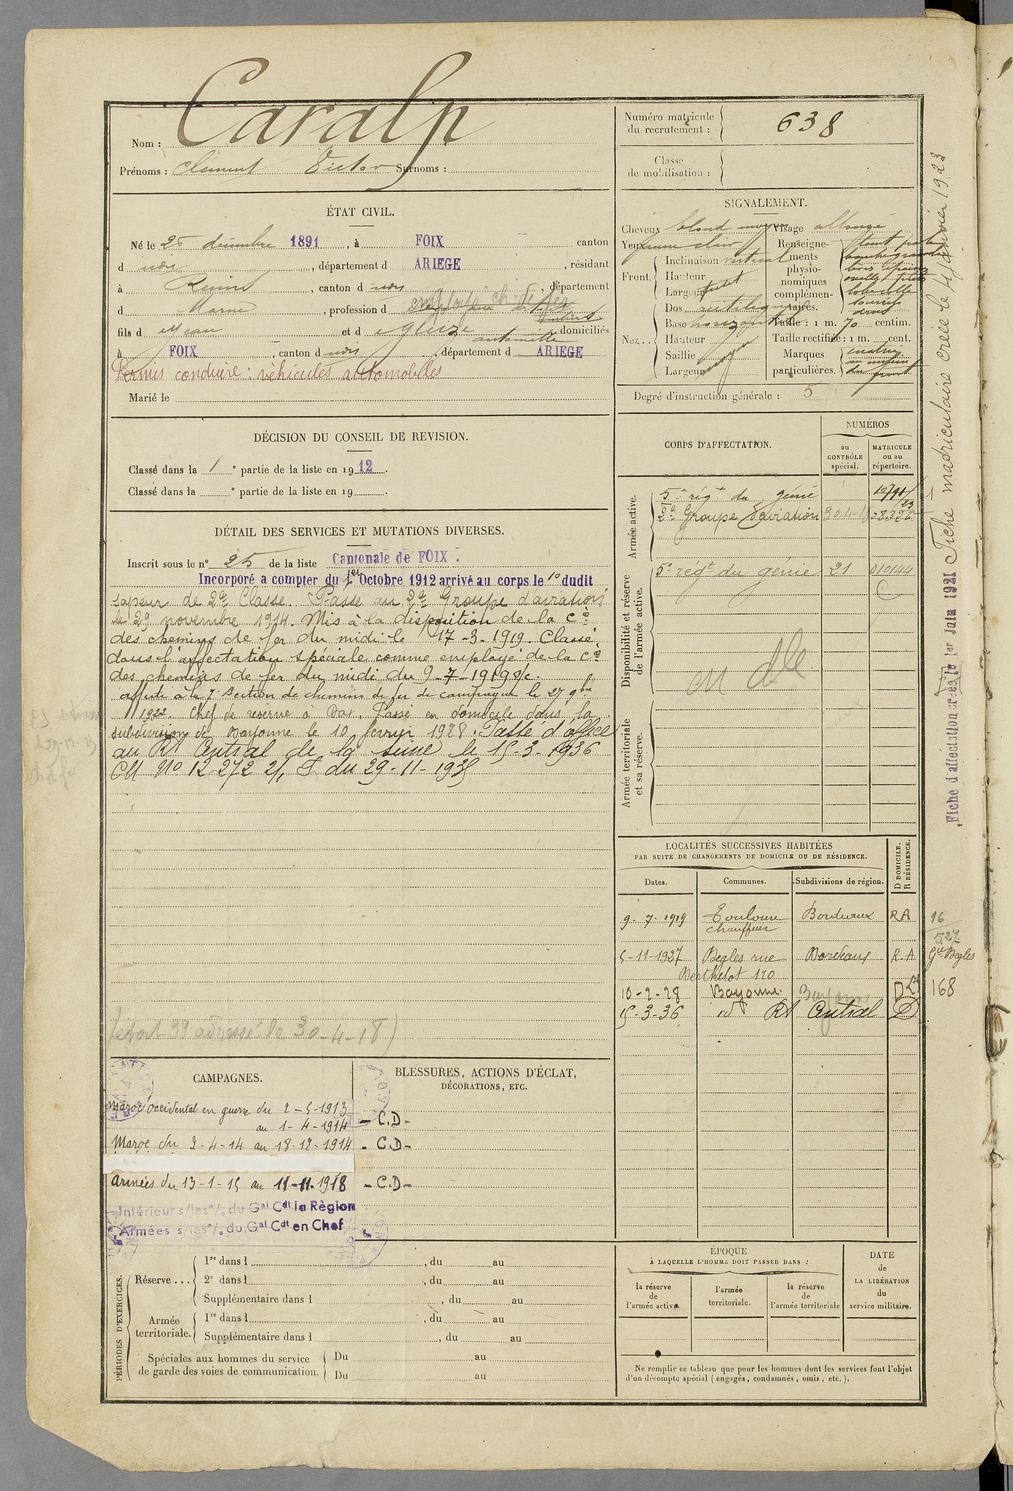 Nom : Caralp
Prénoms : Clément Victor Surnoms :
ÉTAT CIVIL.
Né le 25 décembre 1891, à FOIX canton
d udis, département d ARIEGE, résidant
à Reims, canton d udis, département
d Marne, profession d employé ch. de fer
fils d Jean et d domiciliés
à FOIX, canton d udis, département d ARIEGE
Permis conduire : véhicules automobiles
Marié le
DÉCISION DU CONSEIL DE REVISION.
Classé dans la 1e partie de la liste en 1912.
Classé dans la e partie de la liste en 19
DÉTAIL DES SERVICES ET MUTATIONS DIVERSES.
Inscrit sous le n° 25 de la liste Cantonale de FOIX.
Incorporé a compter du 1er Octobre 1912 arrivé au corps le 10 dudit
sapeur de 2e Classe. Passé au 2e Groupe d'aviation
le 29 novembre 1914. Mis à la disposition de la Cie
des chemins de fer du midi le 17-3-1919. Classé
dans l'affectation spéciale comme employé de la Cie
des chemins de fer du midi du 9-7-1919
affecté à la 7e Section de chemins de fer de campagne le 27 9bre
1922. Chef de réserve à Dax. Passé en domicile dans la
subdivision de Bayonne le 10 février 1928. Passé d'office
au RI Central de la Seine le 15-3-1936
CM No 12 272 21, du 29-11-1935
(état 39 adressé le 30-4-18)
CAMPAGNES.
Maroc occidental en guerre du 2-5-1913
au 1-4-1914 - C.D -
Maroc du 2-4-14 au 18-12-1914 - C.D -
Armées du 13-1-15 au 11-11-1918 - C.D -
Intérieur s/les o/. du Gal Cdt la Règion
Armées s/les o/. du Gal Cdt en Chef
BLESSURES, ACTIONS D'ÉCLAT,
DÉCORATIONS, ETC.
PÉRIODES D'EXERCICES.
Réserve...
1re dans l , du au
2e dans l , du au
Supplémentaire dans l , du au
Armée territoriale.
1re dans l , du au
Supplémentaire dans l , du au
Spéciales aux hommes du service
de garde des voies de communication.
Du au
Du au
Numéro matricule
du recrutement : 638
Classe
de mobilisation :
SIGNALEMENT.
Cheveux blond moyen Visage allongé
Yeux clair
Front. Inclinaison vertical
Hauteur
Largeur
Nez.. Dos rectiligne
Base horizontal
Hauteur
Saillie
Largeur
Renseignements physionomiques complémentaires.
Taille : 1 m. 70 centim.
Taille rectifiée : 1 m. cent.
Marques particulières. cicatrice
au milieu
du front
Degré d'instruction générale : 5
CORPS D'AFFECTATION.
NUMÉROS
au CONTRÔLE spécial.
MATRICULE ou au répertoire.
Armée active.
5e régt du génie
2e Groupe d'aviation
Disponibilité et réserve de l'armée active.
5e régt du génie 21 010144
C
Armée territoriale et sa réserve.
LOCALITÉS SUCCESSIVES HABITÉES
PAR SUITE DE CHANGEMENTS DE DOMICILE OU DE RÉSIDENCE.
Dates. Communes. Subdivisions de région. D DOMICILE. R RÉSIDENCE.
9-7-1919 Toulouse Bordeaux RA 16
chauffeur 527
5-11-1927 Begles rue Bordeaux R.A Gue Begles
Berthelot 120
10-2-28 Bayonne. Bayonne D 168
15-3-36 id RI Central D
ÉPOQUE
À LAQUELLE L'HOMME DOIT PASSER DANS :
la réserve de l'armée active
l'armée territoriale.
la réserve de l'armée territoriale
DATE DE LA LIBÉRATION du service militaire.
Ne remplir ce tableau que pour les hommes dont les services font l'objet
d'un décompte spécial (engagés, condamnés, omis, etc.).
Fiche matriculaire créée le 4 Janvier 1923
Fiche d'affectation créée le 1er Juin 1921